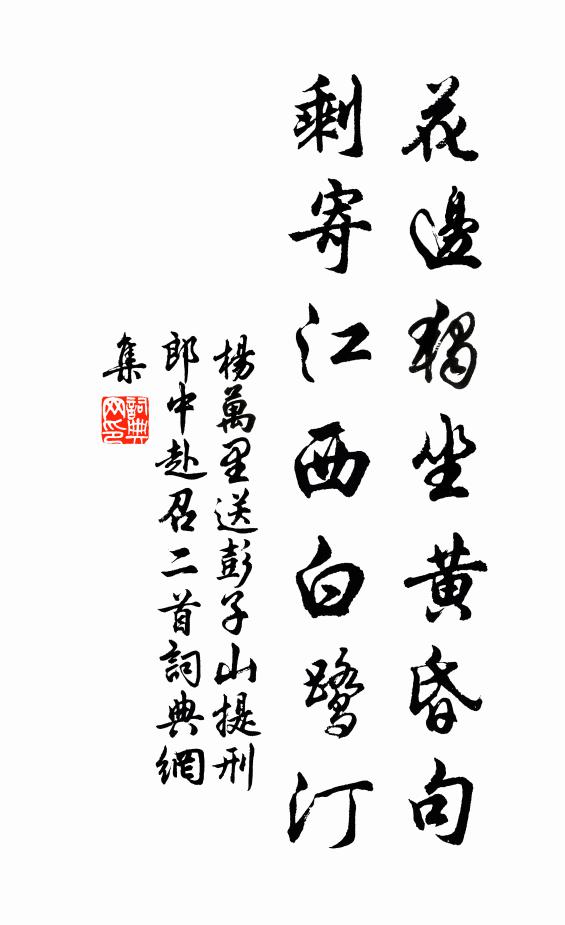 花邊獨坐黃昏句
剩寄江西白鷺汀
楊萬里送彭子山提刑
郎中赴召二首詞典網
集
詞典
网印